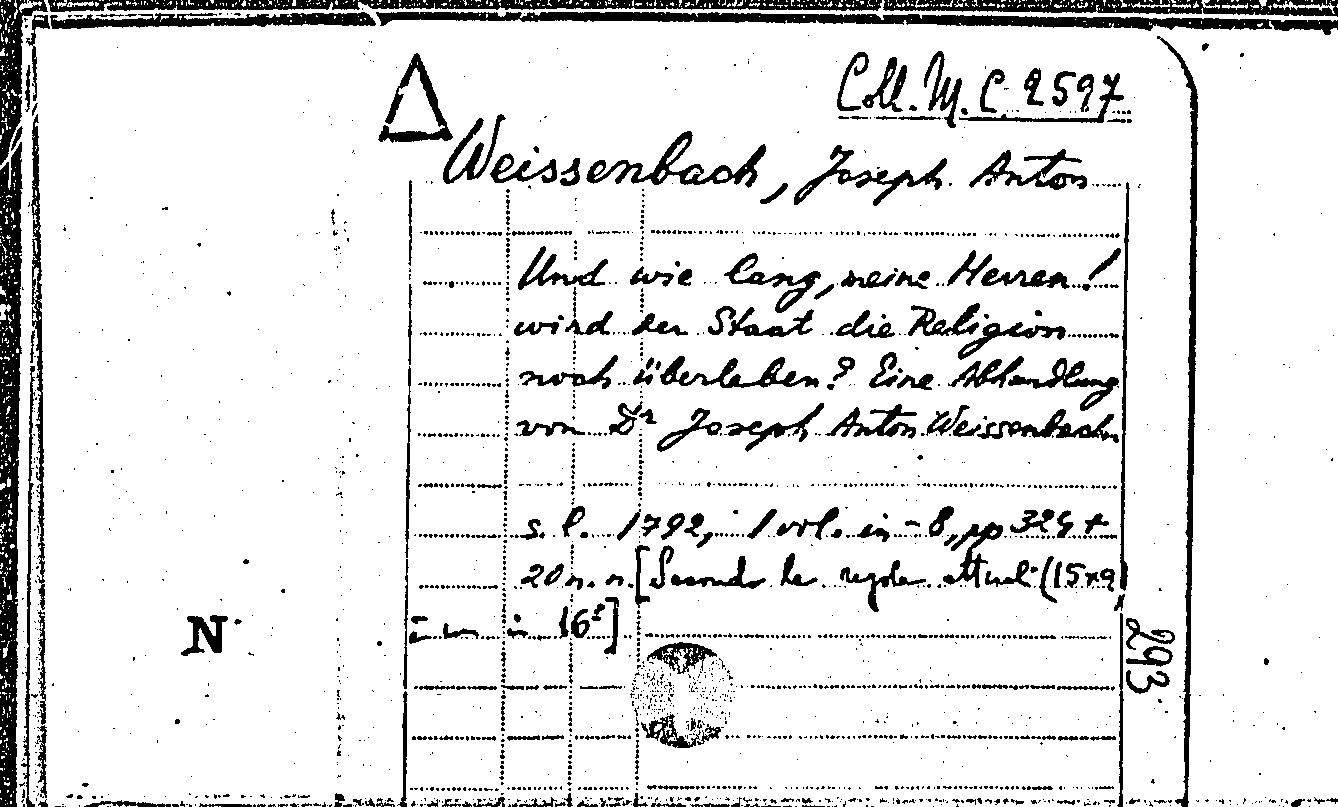 Coll. M. C. 2597
Weissenbach, Joseph Anton
Und wie lang, meine Herren!
wird der Staat die Religion
noch überleben? Eine Abhandlung
von Dr Joseph Anton Weissenbach
s. l. 1792, 1 vol. in -8, pp 324 +
20 n. n. [Secondo le regole attuali (15x9)
è un in 16º]
N
293